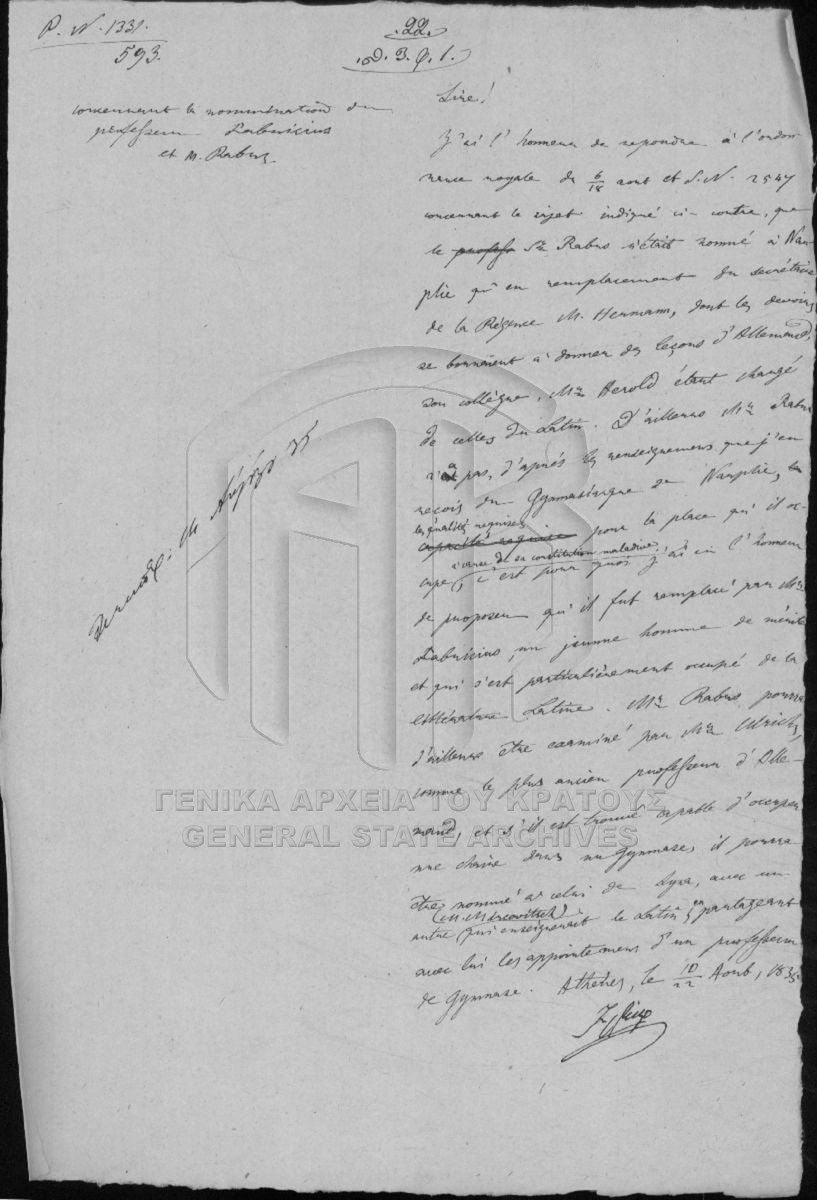 P. N. 1331.
593.
.22.
.d. 3. Q. 1.
concernant la nomination du
professeur Fabricius
et M. Rabus.
Sire!
J'ai l'honneur de repondre à l'ordon-
nance royale du 6/18 aout et S. N. 2547
concernant le sujet indiqué ci-contre, que
le profess Sr Rabus n'était nommé à Nau-
plie qu'en remplacement du secrétaire
de la Régence M. Hermann, dont les devoirs
se bornaient à donner des leçons d'Allemand,
son collègue, Mr Herold étant changé
de celles du Latin. D'ailleurs Mr Rabus
n'a pas, d'après les renseignemens que j'en
reçois du Gymnasiarque de Nauplie,
les qualités requises
capacité requise pour la place qu'il oc-
à cause de sa constitution maladive
cupe, c'est pourquoi j'ai eu l'honneur
de proposer qu'il fut remplacé par Mr
Fabricius, un jeune homme de mérite
et qui s'est particulièrement occupé de la
littérature Latine. Mr Rabus pourra
d'ailleurs être examiné par Mr Ulrichs,
comme le plus ancien professeur d'Alle-
mand, et s'il est trouvé capable d'occuper
une chaire dans un Gymnase, il pourra
être nommé à celui de Syra, avec un
(M. Marcovitsch)
autre qui enseignerait le Latin, en partageant
avec lui les appointemens d'un professeur
de Gymnase. Athènes, le 10/22 Aout, 1835
ΓΕΝΙΚΑ ΑΡΧΕΙΑ ΤΟΥ ΚΡΑΤΟΥΣ
GENERAL STATE ARCHIVES